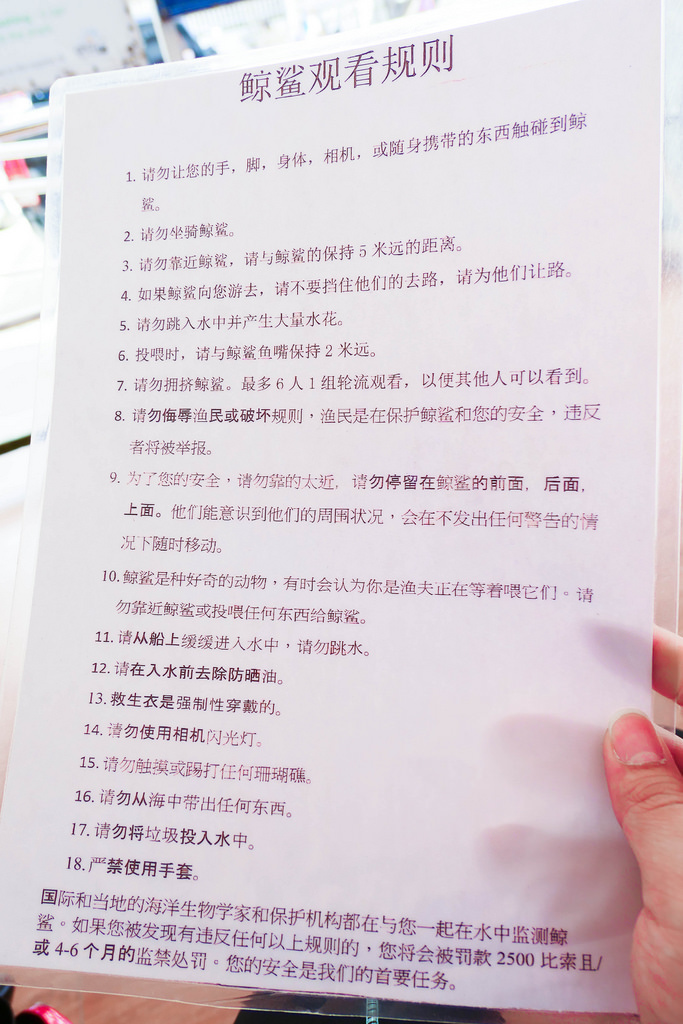 鲸鲨观看规则
1. 请勿让您的手，脚，身体，相机，或随身携带的东西触碰到鲸
鲨。
2. 请勿坐骑鲸鲨。
3. 请勿靠近鲸鲨，请与鲸鲨的保持 5 米远的距离。
4. 如果鲸鲨向您游去，请不要挡住他们的去路，请为他们让路。
5. 请勿跳入水中并产生大量水花。
6. 投喂时，请与鲸鲨鱼嘴保持 2 米远。
7. 请勿拥挤鲸鲨。最多 6 人 1 组轮流观看，以便其他人可以看到。
8. 请勿侮辱渔民或破坏规则，渔民是在保护鲸鲨和您的安全，违反
者将被举报。
9. 为了您的安全，请勿靠的太近，请勿停留在鲸鲨的前面，后面，
上面。他们能意识到他们的周围状况，会在不发出任何警告的情
况下随时移动。
10. 鲸鲨是种好奇的动物，有时会认为你是渔夫正在等着喂它们。请
勿靠近鲸鲨或投喂任何东西给鲸鲨。
11. 请从船上缓缓进入水中，请勿跳水。
12. 请在入水前去除防晒油。
13. 救生衣是强制性穿戴的。
14. 请勿使用相机闪光灯。
15. 请勿触摸或踢打任何珊瑚礁。
16. 请勿从海中带出任何东西。
17. 请勿将垃圾投入水中。
18. 严禁使用手套。
国际和当地的海洋生物学家和保护机构都在与您一起在水中监测鲸
鲨。如果您被发现有违反任何以上规则的，您将会被罚款 2500 比索且/
或 4-6 个月的监禁处罚。您的安全是我们的首要任务。